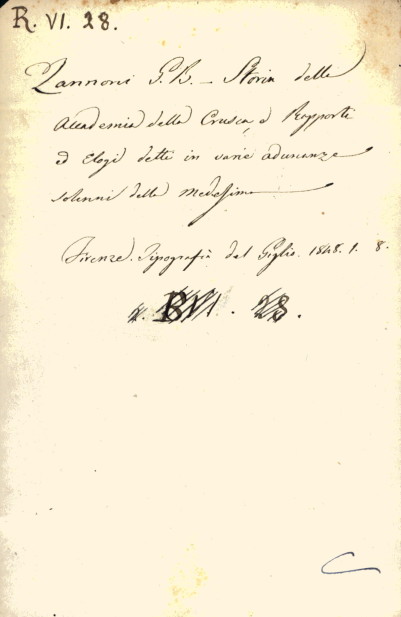 R. VI. 28.
Zannoni G. B. - Storia della
Accademia della Crusca, e Rapporti
ed Elogi detti in varie adunanze
solenni della Medesima
Firenze. Tipografia del Giglio. 1848. 1. 8.
R. VI. 28.